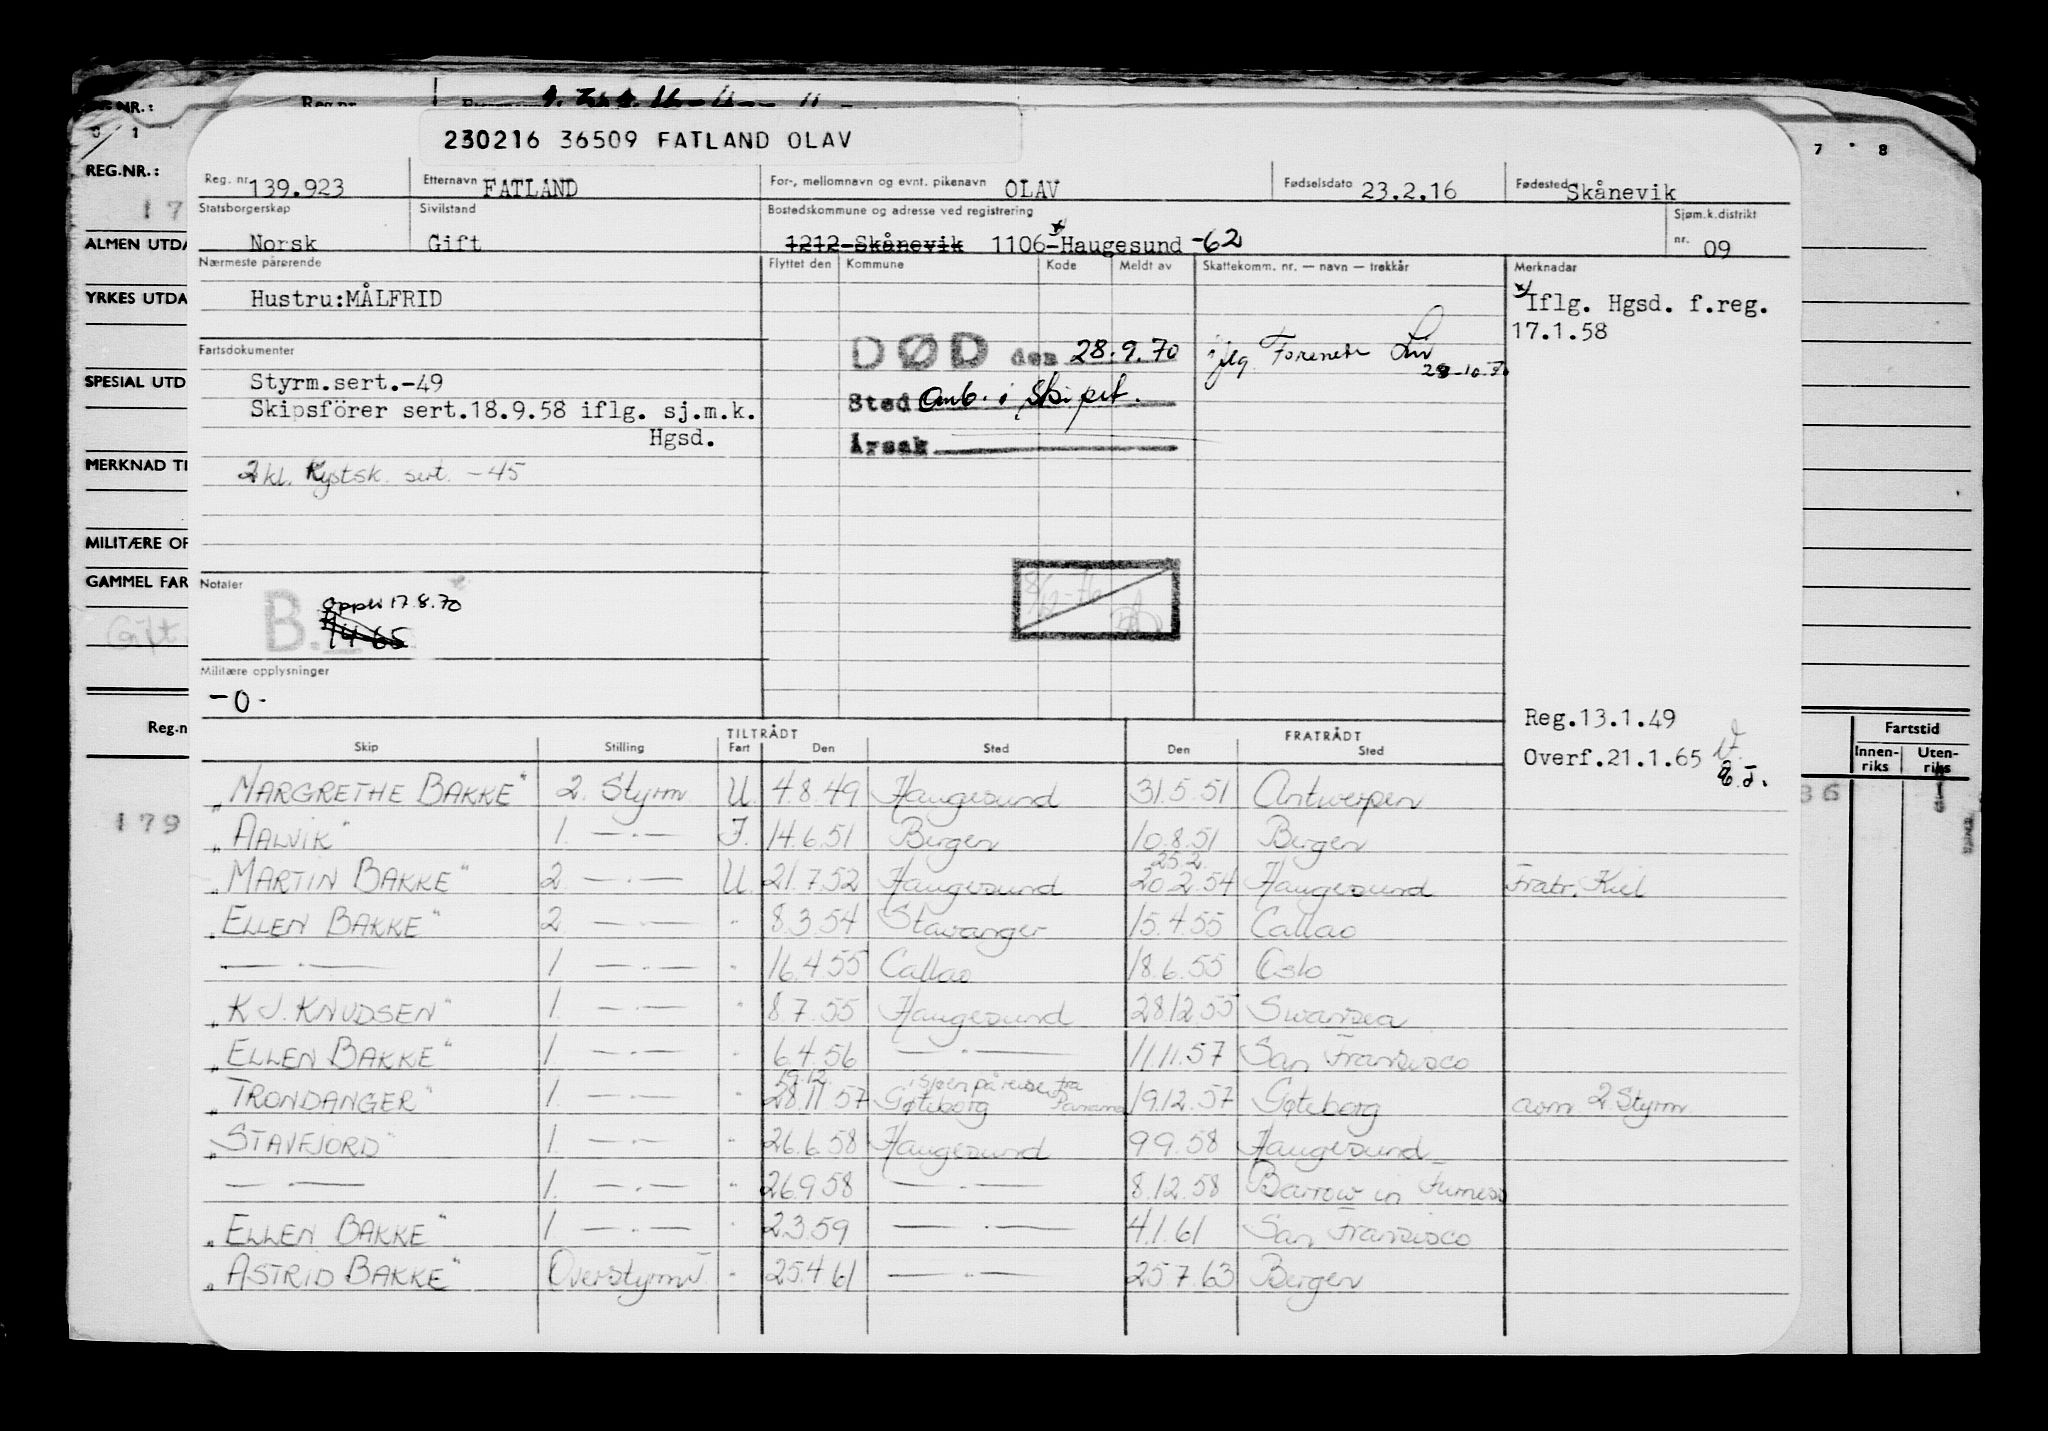 230216 36509 FATLAND OLAV
Reg. nr. 139.923 Etternavn FATLAND For-, mellomnavn og evnt. pikenavn OLAV Fødselsdato 23.2.16 Fødested Skånevik
Statsborgerskap Norsk Sivilstand Gift Bostedskommune og adresse ved registrering 1212-Skånevik 1106-Haugesund -62 Sjøm.k.distrikt nr. 09
Nærmeste pårørende Flyttet den Kommune Kode Meldt av Skattekomm. nr. — navn — trekkår Merknader
Hustru:MÅLFRID
Iflg. Hgsd. f.reg.
17.1.58
Fartsdokumenter
DØD den 28.9.70
Styrm.sert.-49
Sted omb. i skipet.
Skipsförer sert.18.9.58 iflg. sj.m.k.
Hgsd.
Årsak
2 kl. Kystsk. sert. -45
Notater
B.
17.8.70
Militære opplysninger
-0-
Reg.13.1.49
Overf.21.1.65
TILTRÅDT FRATRÅDT
Skip Stilling Fart Den Sted Den Sted
"MARGRETHE BAKKE" 2. Styrm U. 4.8.49 Haugesund 31.5.51 Antwerpen
"AALVIK" 1. —·— I. 14.6.51 Bergen 10.8.51 Bergen
25.2.
"MARTIN BAKKE" 2. —·— U. 21.7.52 Haugesund 20.2.54 Haugesund Fratr. Kiel
"ELLEN BAKKE" 2. —·— " 8.3.54 Stavanger 15.4.55 Callao
—·— 1. —·— " 16.4.55 Callao 18.6.55 Oslo
"K J. KNUDSEN" 1. —·— " 8.7.55 Haugesund 28.12.55 Swansea
"ELLEN BAKKE" 1. —·— " 6.4.56 —·— 11.11.57 San Francisco
19.12. i sjøen på reise fra Panama
"TRONDANGER" 1. —·— " 28.11.57 Gøteborg 19.12.57 Gøteborg som 2. Styrm.
"STAVFJORD" 1. —·— " 26.6.58 Haugesund 9.9.58 Haugesund
—·— 1. —·— " 26.9.58 —·— 8.12.58 Barrow in Furness
"ELLEN BAKKE" 1. —·— " 2.3.59 —·— 4.1.61 San Francisco
"ASTRID BAKKE" Overstyrm. " 25.4.61 —·— 25.7.63 Bergen
REG.NR.:
ALMEN UTDA
YRKES UTDA
SPESIAL UTD
MERKNAD TI
MILITÆRE OP
GAMMEL FAR
Gift.
Reg.n
179
7 8
Fartstid
Innen-riks Uten-riks
36